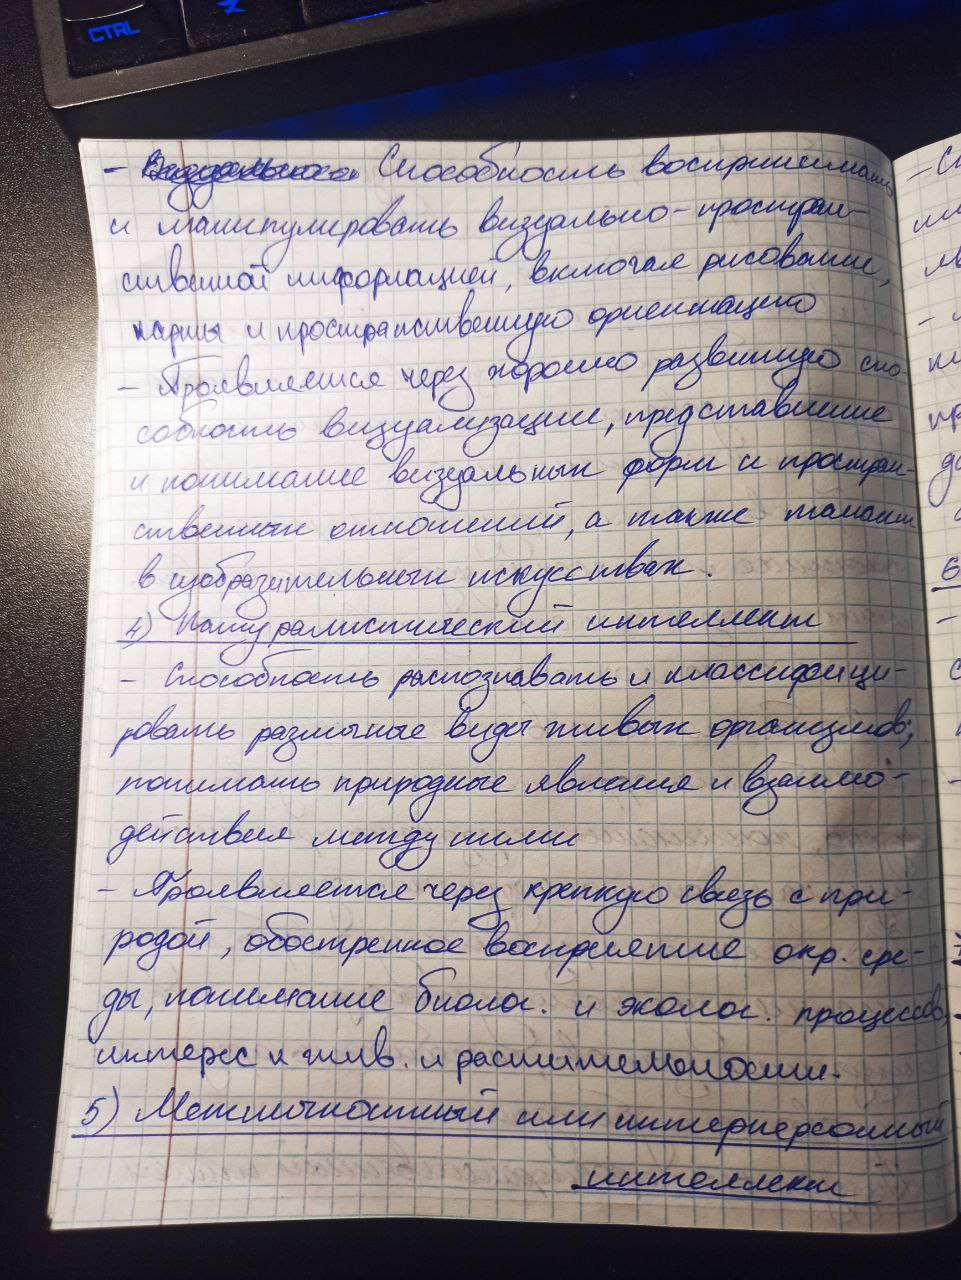 CTRL
- Способность воспринимать
и манипулировать визуально-простран-
ственной информацией, включая рисование,
карты и пространственную ориентацию
- Проявляется через хорошо развитую спо-
собность визуализации, представление
и понимание визуальных форм и простран-
ственных отношений, а также талант
в изобразительных искусствах.
4) Натуралистический интеллект
- Способность распознавать и классифици-
ровать различные виды живых организмов,
понимать природные явления и взаимо-
действия между ними
- Проявляется через крепкую связь с при-
родой, обостренное восприятие окр. сре-
ды, понимание биолог. и эколог. процессов,
интерес к жив. и растительности.
5) Межличностный или интерперсонный
интеллект
6